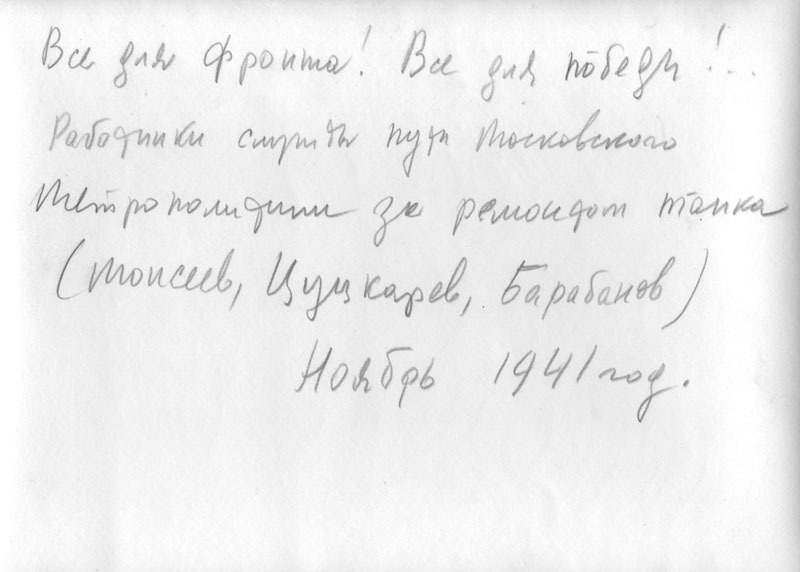 Все для фронта! Все для победы!...
Работники службы пути Московского
Метрополитена за ремонтом танка
(Моисеев, Цуцкарев, Барабанов)
Ноябрь 1941 год.